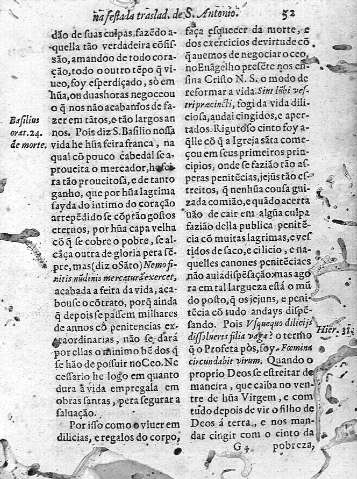 nã festa da traslad. de S. Antonio. 52
dão de suas culpas, fazẽdo a-
quella tão verdadeira cõfis-
são, amandoo de todo cora-
ção, todo o outro tẽpo q̃ vi-
ueo, foy esperdiçado, só em
hũa, ou duas horas negoceou
o q̃ nos não acabamos de fa-
zer em tãtos, e tão largos an-
nos. Pois diz S. Basilio nossa
vida he hũa feira franca, na
qual cõ pouco cabedal se a-
proueita o mercador,
Basilius
orat. 24.
de morte.
tão proueitosa, e de tanto
ganho, que por hũa lagrima
sayda do intimo do coração
arrepẽdido se cõprão gostos
eternos, por hũa capa velha
cõ q̃ se cobre o pobre, se al-
cãça outra de gloria pera sẽ-
pre, mas (diz o Sãto) Nemo fi-
nitis nũdinis mercaturã exercet,
acabada a feita da vida, aca-
bouse o cõtrato, porq̃ ainda
q̃ depois se passem milhares
de annos cõ penitencias ex-
traordinarias, não se dará
por ellas o minimo bẽ dos q̃
se hão de possuir no Ceo. Ne
cessario he logo em quanto
dura a vida empregala em
obras santas, pera segurar a
saluação.
Por isso como o viuer em
dilicias, e regalos do corpo,
faça esquecer da morte, e
dos exercicios de virtude cõ
q̃ auemos de negociar o ceo,
no Euãgelho presẽte nos en-
sina Cristo N. S. o modo de
reformar a vida. Sint lũbi ves-
tri præcincti, fogi da vida dili-
ciosa, audai cingidos, e aper-
tados. Riguroso cinto foy a-
q̃lle cõ q̃ a Igreja sãta come-
çou em seus primeiros princi-
pios, onde se fazião tão as-
peras penitẽcias, jejũs tão es-
treitos, q̃ nenhũa cousa gui-
zada comião, e quãdo acerta
uão de cair em algũa culpa
fazião della publica penitẽ
cia cõ muitas lagrimas, e ves
tidos de saco, e cilicio, e na-
quelles canones penitẽciaes
não auia dispẽsação: mas ago
ra em tal largueza está o mũ
do posto, q̃ os jejuns, e peni-
tẽcia cõ tudo andays dispẽ-
sando. Pois Vsquequo dilicijs
dissolueris filia vaga? o termo
Hier. 31.
q̃ o Profeta põs, foy Fœmina
circundabit virum. Quando o
proprio Deos se estreitar de
maneira, que caiba no ven-
tre de hũa Virgem, e com
tudo depois de vir o filho de
Deos á terra, e nos man-
dar cingir com o cinto da
G 4 pobreza,